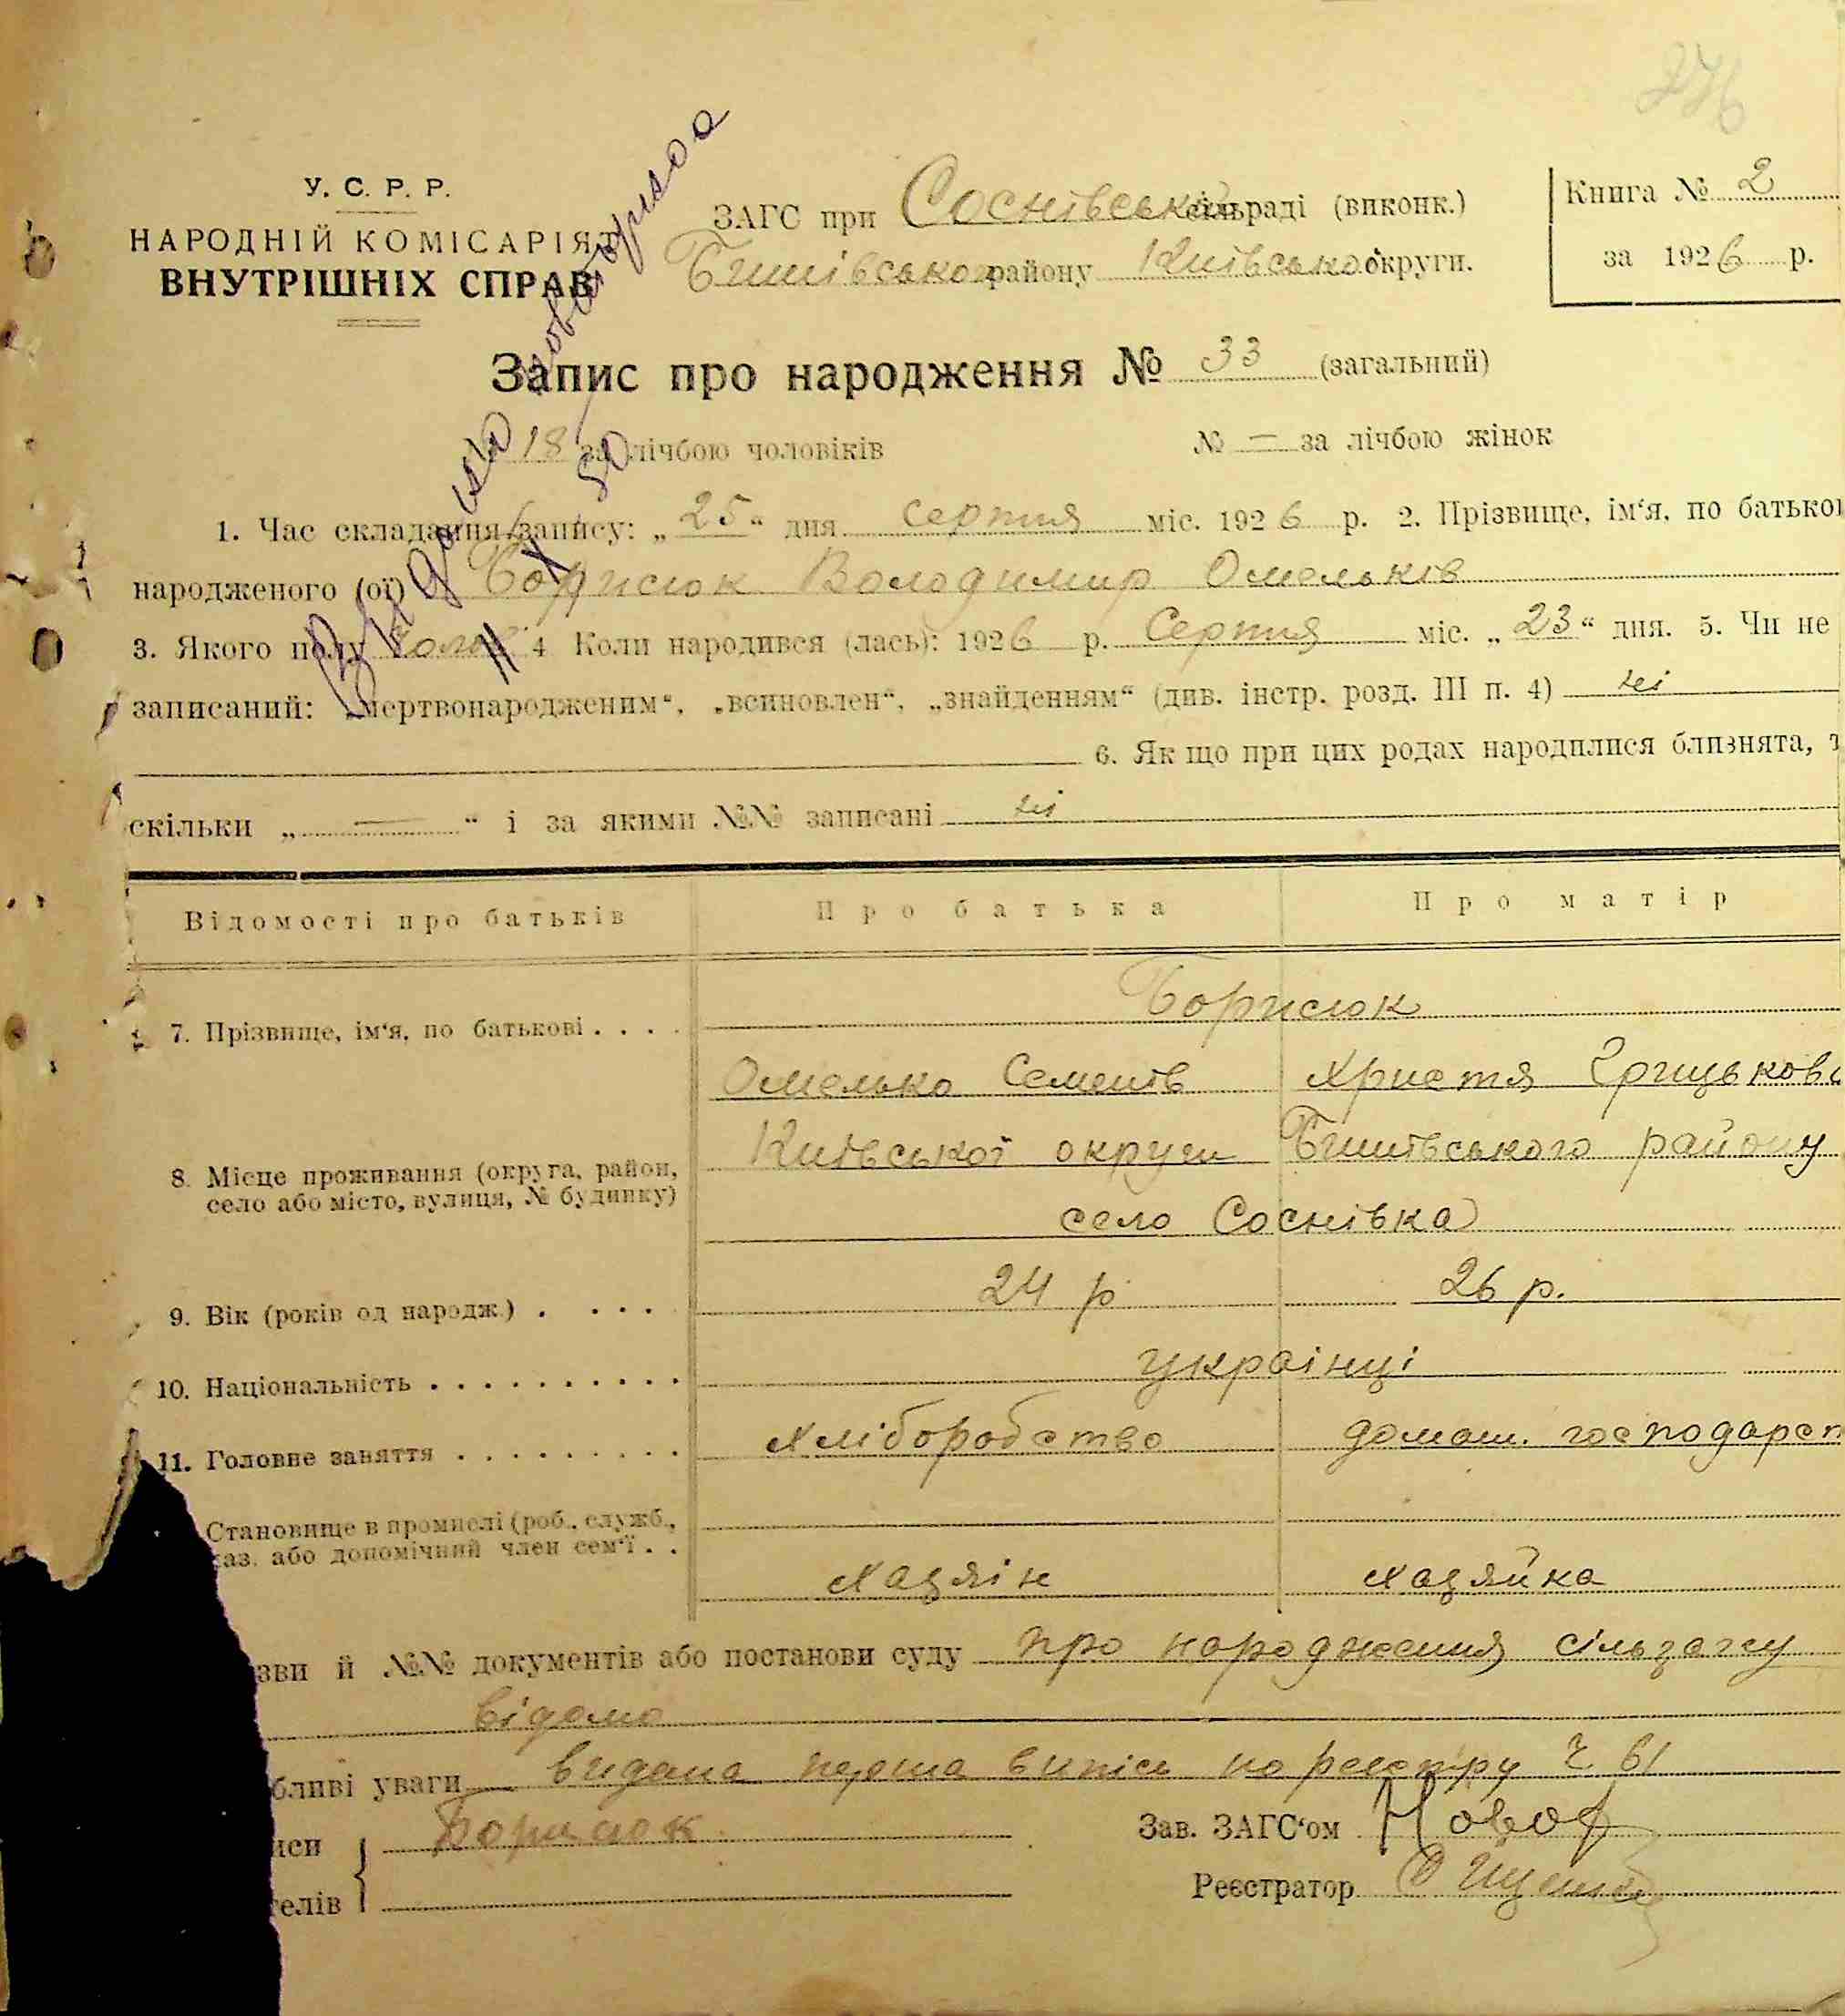 276
У. С. Р. Р.
НАРОДНІЙ КОМІСАРІЯТ
ВНУТРІШНІХ СПРАВ
ЗАГС при Соснівській сільраді (виконк.)
району Київської округи.
Книга № 2
за 1926 р.
Запис про народження № 33 (загальний)
18 за лічбою чоловіків № — за лічбою жінок
1. Час складання запису: „25“ дня серпня міс. 1926 р. 2. Прізвище, ім‘я, по батькові
народженого (ої) Борисюк Володимир Омельків
3. Якого полу чолов 4 Коли народився (лась): 1926 р. Серпня міс. „23“ дня. 5. Чи не
записаний: „мертвонародженим“, „всиновлен“, „знайденням“ (див. інстр. розд. III п. 4) ні
6. Як що при цих родах народилися близнята, т
скільки „ — “ і за якими №№ записані ні
Відомості про батьків Про батька Про матір
7. Прізвище, ім‘я, по батькові . . . . Борисюк
Омелько Семенів Христя Грицькова
8. Місце проживання (округа, район, село або місто, вулиця, № будинку) Київської округи району
село Соснівка
9. Вік (років од народж.) . . . . 24 р 26 р.
10. Національність . . . . . . . . . . українці
11. Головне заняття . . . . . . . . . хліборобство домаш. господарст
Становище в промислі (роб., служб.,
аз. або допомічний член сем‘ї . .
хазяїн хазяйка
зви й №№ документів або постанови суду про народження сільзагсу
відомо
бливі уваги видана перша випись по реєстру Ч. 61
иси Борисюк Зав. ЗАГС‘ом
елів Реєстратор